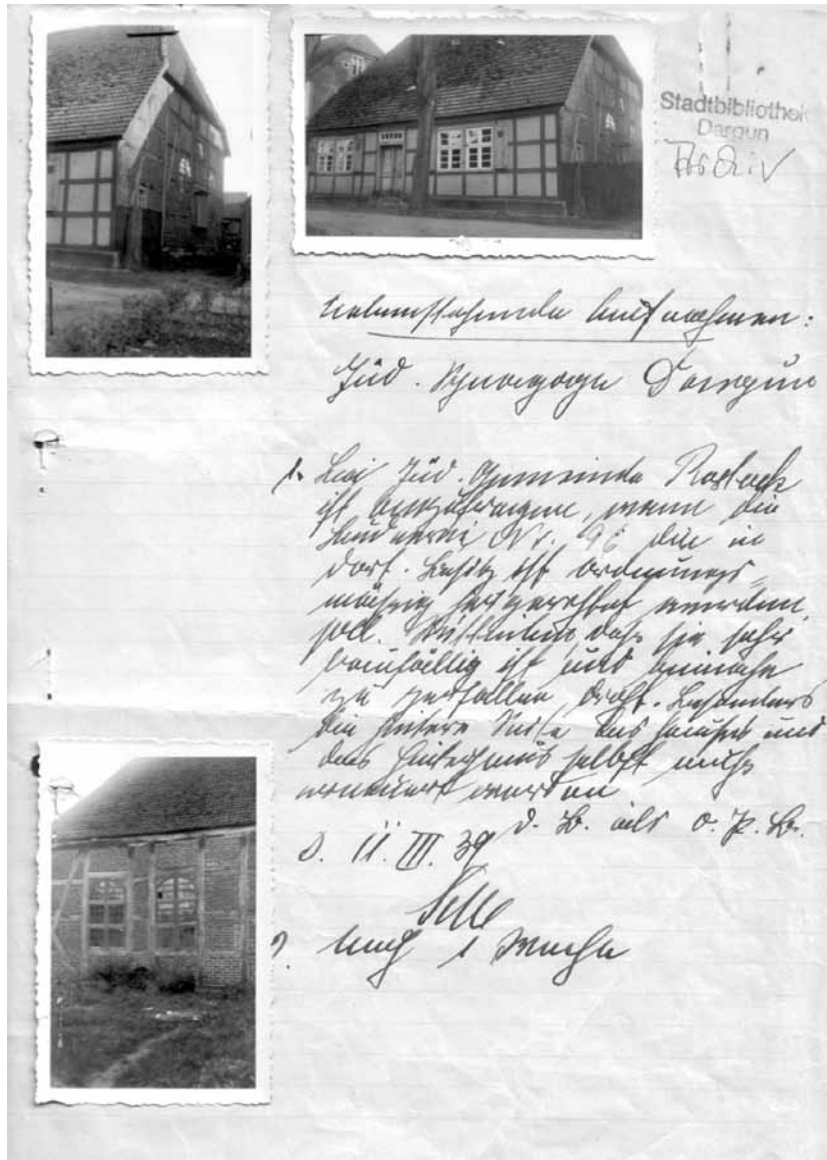 Stadtbibliothek
Dargun
Archiv
Nebenstehende Aufnahmen:
Jüd. Synagoge Dargun
1. Bei Jüd. Gemeinde Rostock
ist anzufragen, wann die
Nr. 96 die in
dort. Besitz ist ordnungs-
mässig hergerichtet werden
soll. Mitteilen, dass sie sehr
baufällig ist und beinahe
zu zerfallen droht. Besonders
die hintere Seite des Hauses und
das Hinterhaus selbst muss
erneuert werden
d. B. als O. P. B.
D. 11. III. 39
2. Nach 1 Woche